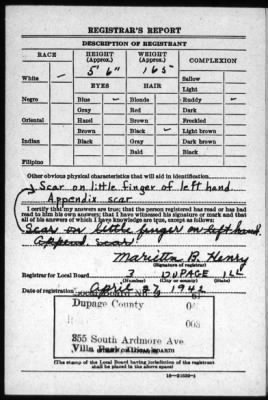 REGISTRAR'S REPORT
DESCRIPTION OF REGISTRANT
RACE
HEIGHT
(Approx.)
WEIGHT
(Approx.)
COMPLEXION
White
5' 6"
165
Sallow
Light
EYES
HAIR
Negro
Blue
Blonde
Ruddy
Gray
Red
Dark
Oriental
Hazel
Brown
Freckled
Brown
Black
Light brown
Indian
Black
Gray
Dark brown
Bald
Black
Filipino
Other obvious physical characteristics that will aid in identification
Scar on little finger of left hand
Appendix scar
I certify that my answers are true; that the person registered has read or has had
read to him his own answers; that I have witnessed his signature or mark and that
all of his answers of which I have knowledge are true, except as follows:
Scar on little finger on left hand.
scar
Marietta B. Henry
(Signature of registrar)
Registrar for Local Board 3 DUPAGE ILL
(Number) (City or county) (State)
Date of registration April 1942
Dupage County
003
355 South Ardmore Ave
Villa Park
(The stamp of the Local Board having jurisdiction of the registrant
shall be placed in the above space)